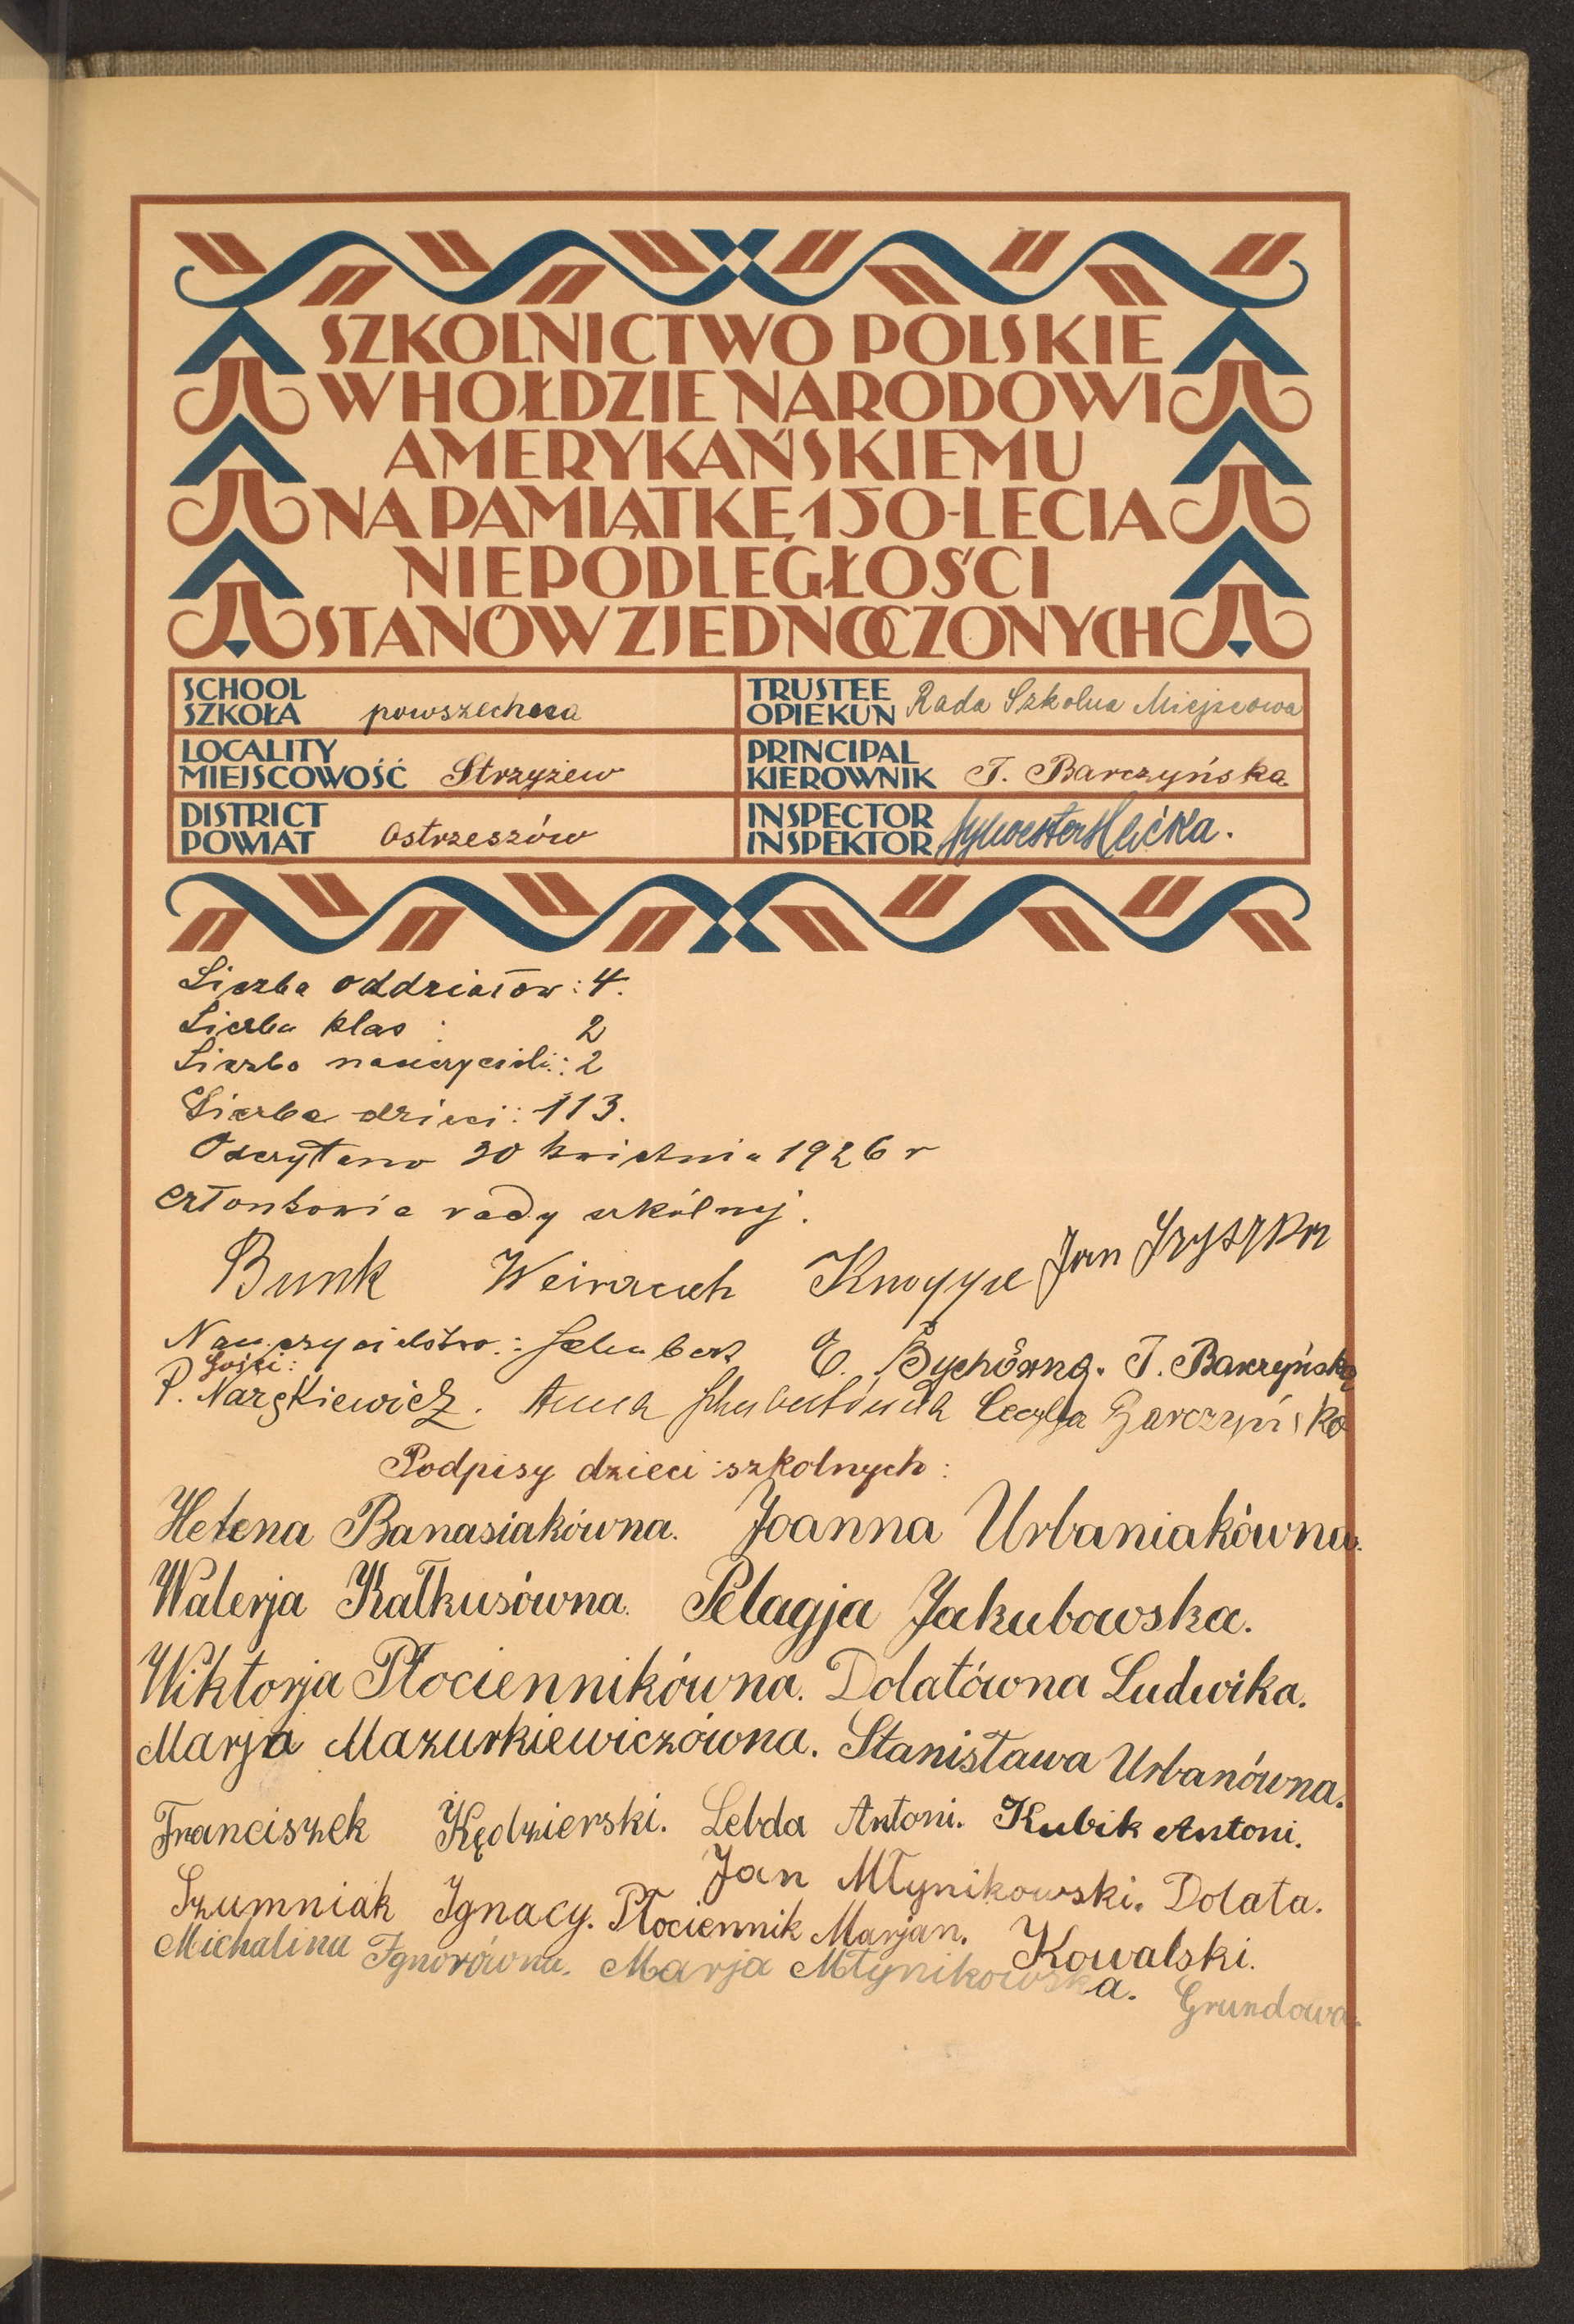 SZKOLNICTWO POLSKIE
W HOŁDZIE NARODOWI
AMERYKAŃSKIEMU
NA PAMIĄTKĘ 150-LECIA
NIEPODLEGŁOŚCI
STANÓW ZJEDNOCZONYCH
SCHOOL
SZKOŁA powszechna
TRUSTEE
OPIEKUN Rada Szkolna Miejscowa
LOCALITY
MIEJSCOWOŚĆ Strzyżew
PRINCIPAL
KIEROWNIK T. Barczyńska
DISTRICT
POWIAT Ostrzeszów
INSPECTOR
INSPEKTOR Sylwester
Liczba oddziałów: 4.
Liczba klas: 2
Liczba nauczycieli: 2
Liczba dzieci: 113.
Odczytano 30 kwietnia 1926 r
Członkowie rady szkólnej.
Bunk Weinrauch Jan
Nauczycielstwo: Schubert E. Bychówna. T. Barczyńska
Goście:
P. Narzkiewicz. Anna Schubertówna Cecylja Barczyńska
Podpisy dzieci szkolnych:
Helena Banasiakówna. Joanna Urbaniakówna.
Walerja Kałkusówna. Pelagja Jakubowska.
Wiktorja Płociennikówna. Dolatówna Ludwika.
Marja Mazurkiewiczówna. Stanisława Urbanówna.
Franciszek Kędzierski. Lebda Antoni. Kubik Antoni.
Jan Młynikowski. Dolata.
Szumniak Ignacy. Płociennik Marjan. Kowalski.
Michalina Ignorówna. Marja Młynikowska. Grundowa.